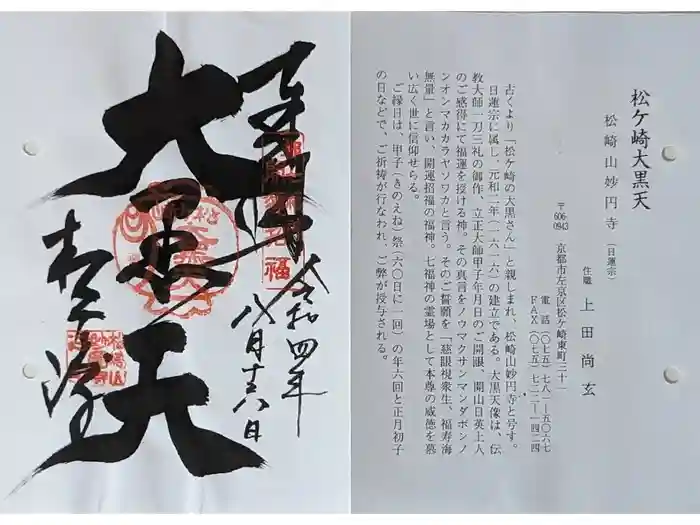 奉拝
大黒天
令和四年
八月十六日
松ケ崎大黒天
松崎山妙円寺（日蓮宗）
住職 上田尚玄
〒606-0943 京都市左京区松ケ崎東町三十一
電話（〇七五）七八一―五〇六七
FAX（〇七五）七二二―一四二四
古くより「松ケ崎の大黒さん」と親しまれ、松崎山妙円寺と号す。
日蓮宗に属し、元和二年（一六一六）の建立である。大黒天像は、伝
教大師一刀三礼の御作、立正大師甲子年月日のご開眼、開山日英上人
のご感得にて福運を授ける神。その真言をノウマクサンマンダボダノ
ンオンマカカラヤソワカと言う。そのご誓願を「慈眼視衆生、福寿海
無量」と言い、開運招福の福神。七福神の霊場として本尊の威徳を慕
い広く世に信仰せらる。
ご縁日は、甲子（きのえね）祭（六〇日に一回）の年六回と正月初子
の日などで、ご祈祷が行なわれ、ご弊が授与される。